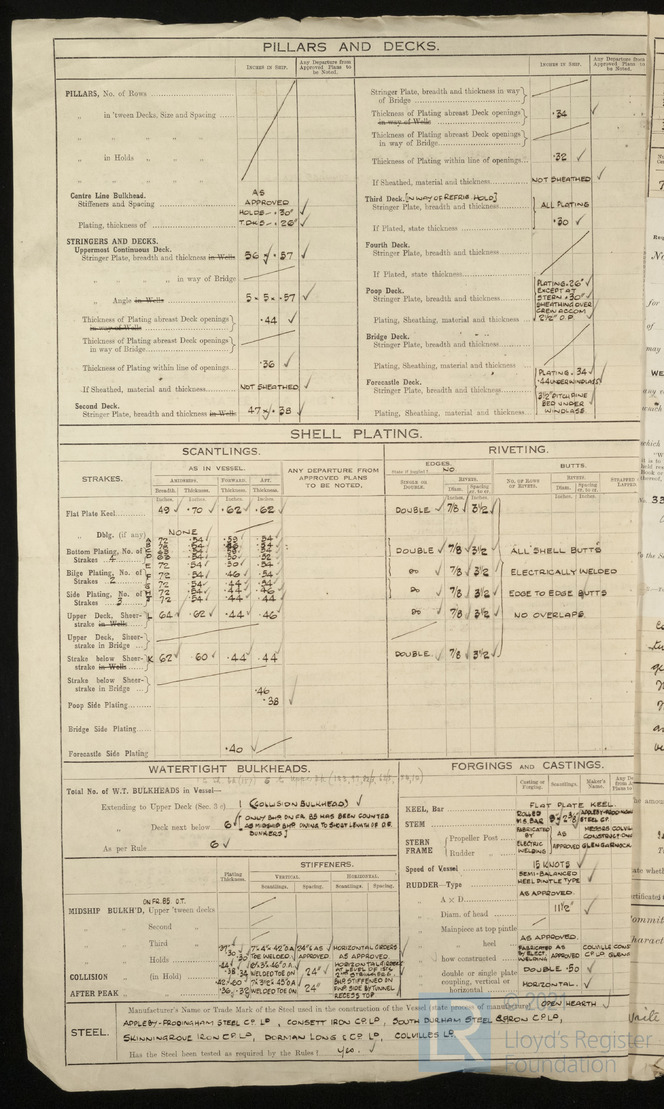 PILLARS AND DECKS.
INCHES IN SHIP.
Any Departure from Approved Plans to be Noted.
PILLARS, No. of Rows
„ in 'tween Decks, Size and Spacing
„ „ „ „
„ in Holds „ „
„ „ „ „
Centre Line Bulkhead.
Stiffeners and Spacing AS APPROVED
Plating, thickness of HOLDS - .30" T.DKS - .26"
STRINGERS AND DECKS.
Uppermost Continuous Deck.
Stringer Plate, breadth and thickness in Wells 56 × .57
„ „ „ in way of Bridge
„ Angle in Wells 5 × 5 × .57
Thickness of Plating abreast Deck openings in way of Wells .44
Thickness of Plating abreast Deck openings in way of Bridge
Thickness of Plating within line of openings .36
If Sheathed, material and thickness NOT SHEATHED
Second Deck.
Stringer Plate, breadth and thickness in Wells 47 × .38
INCHES IN SHIP.
Any Departure from Approved Plans to be Noted.
Stringer Plate, breadth and thickness in way of Bridge
Thickness of Plating abreast Deck openings in way of Wells .34
Thickness of Plating abreast Deck openings in way of Bridge
Thickness of Plating within line of openings .32
If Sheathed, material and thickness NOT SHEATHED
Third Deck. [IN WAY OF REFRIG. HOLD]
Stringer Plate, breadth and thickness ALL PLATING
If Plated, state thickness .30
Fourth Deck.
Stringer Plate, breadth and thickness
If Plated, state thickness
Poop Deck.
Stringer Plate, breadth and thickness
PLATING .26" EXCEPT AT STERN .30" SHEATHING OVER CREW ACCOM 2½" O.P.
Plating, Sheathing, material and thickness
Bridge Deck.
Stringer Plate, breadth and thickness
Plating, Sheathing, material and thickness
Forecastle Deck.
Stringer Plate, breadth and thickness
PLATING .34 .44 UNDER WINDLASS
Plating, Sheathing, material and thickness
3½" PITCH PINE BED UNDER WINDLASS
SHELL PLATING.
SCANTLINGS.
RIVETING.
STRAKES.
AS IN VESSEL.
AMIDSHIPS. FORWARD. AFT.
Breadth. Thickness. Thickness. Thickness.
Inches. Inches. Inches. Inches.
ANY DEPARTURE FROM APPROVED PLANS TO BE NOTED.
EDGES.
State if joggled? NO
SINGLE OR DOUBLE.
RIVETS.
Diam. Spacing cr. to cr.
Inches. Inches.
BUTTS.
NO. OF ROWS OF RIVETS.
RIVETS.
Diam. Spacing cr. to cr.
Inches. Inches.
Flat Plate Keel 49 .70 .62 .62 DOUBLE 7/8 3½
„ Dblg. (if any) NONE
Bottom Plating, No. of Strakes 4 DOUBLE 7/8 3½ ALL SHELL BUTTS
Bilge Plating, No. of Strakes 2 DO 7/8 3½ ELECTRICALLY WELDED
Side Plating, No. of Strakes 3 DO 7/8 3½ EDGE TO EDGE BUTTS
Upper Deck, Sheer-strake in Wells L 64 .62 .44 .46 DO 7/8 3½ NO OVERLAPS.
Upper Deck, Sheer-strake in Bridge
Strake below Sheer-strake in Wells K 62 .60 .44 .44 DOUBLE. 7/8 3½
Strake below Sheer-strake in Bridge
Poop Side Plating .46 .38
Bridge Side Plating
Forecastle Side Plating .40
WATERTIGHT BULKHEADS.
Total No. of W.T. BULKHEADS in Vessel—
Extending to Upper Deck (Sec. 3 c) 1 (COLLISION BULKHEAD)
„ Deck next below 6 [ONLY BHD ON FR 85 HAS BEEN COUNTED AS MIDSHIP BHD OWING TO SHORT LENGTH OF D.F. BUNKERS]
As per Rule 6
Plating Thickness.
STIFFENERS.
VERTICAL HORIZONTAL
Scantlings. Spacing. Scantlings. Spacing.
ON FR. 85. O.T.
MIDSHIP BULKH'D, Upper 'tween decks
„ „ Second „
„ „ Third „
„ „ Holds
COLLISION „ (in Hold)
AFTER PEAK „ „
FORGINGS AND CASTINGS.
Casting or Forging. Scantlings. Maker's Name.
KEEL, Bar FLAT PLATE KEEL.
STEM ROLLED M.S. BAR APPLEBY-FRODINGHAM STEEL CP.
STERN FRAME
Propeller Post
Rudder „
FABRICATED BY ELECTRIC WELDING AS APPROVED
Speed of Vessel 15 KNOTS
RUDDER—Type SEMI-BALANCED HEEL PINTLE TYPE
„ A × D AS APPROVED
„ Diam. of head 11½"
„ Mainpiece at top pintle
„ „ heel AS APPROVED.
„ how constructed FABRICATED BY ELECT. WELDING AS APPROVED
„ double or single plate DOUBLE .50
„ coupling, vertical or horizontal HORIZONTAL.
STEEL.
Manufacturer's Name or Trade Mark of the Steel used in the construction of the Vessel (state process of manufacture) OPEN HEARTH
APPLEBY-FRODINGHAM STEEL CP. LD, CONSETT IRON CP. LD, SOUTH DURHAM STEEL & IRON CP. LD,
SKINNINGROVE IRON CP. LD, DORMAN LONG & CP. LD, COLVILLES LD.
Has the Steel been tested as required by the Rules? Yes.
© 2021
Lloyd's Register
Foundation